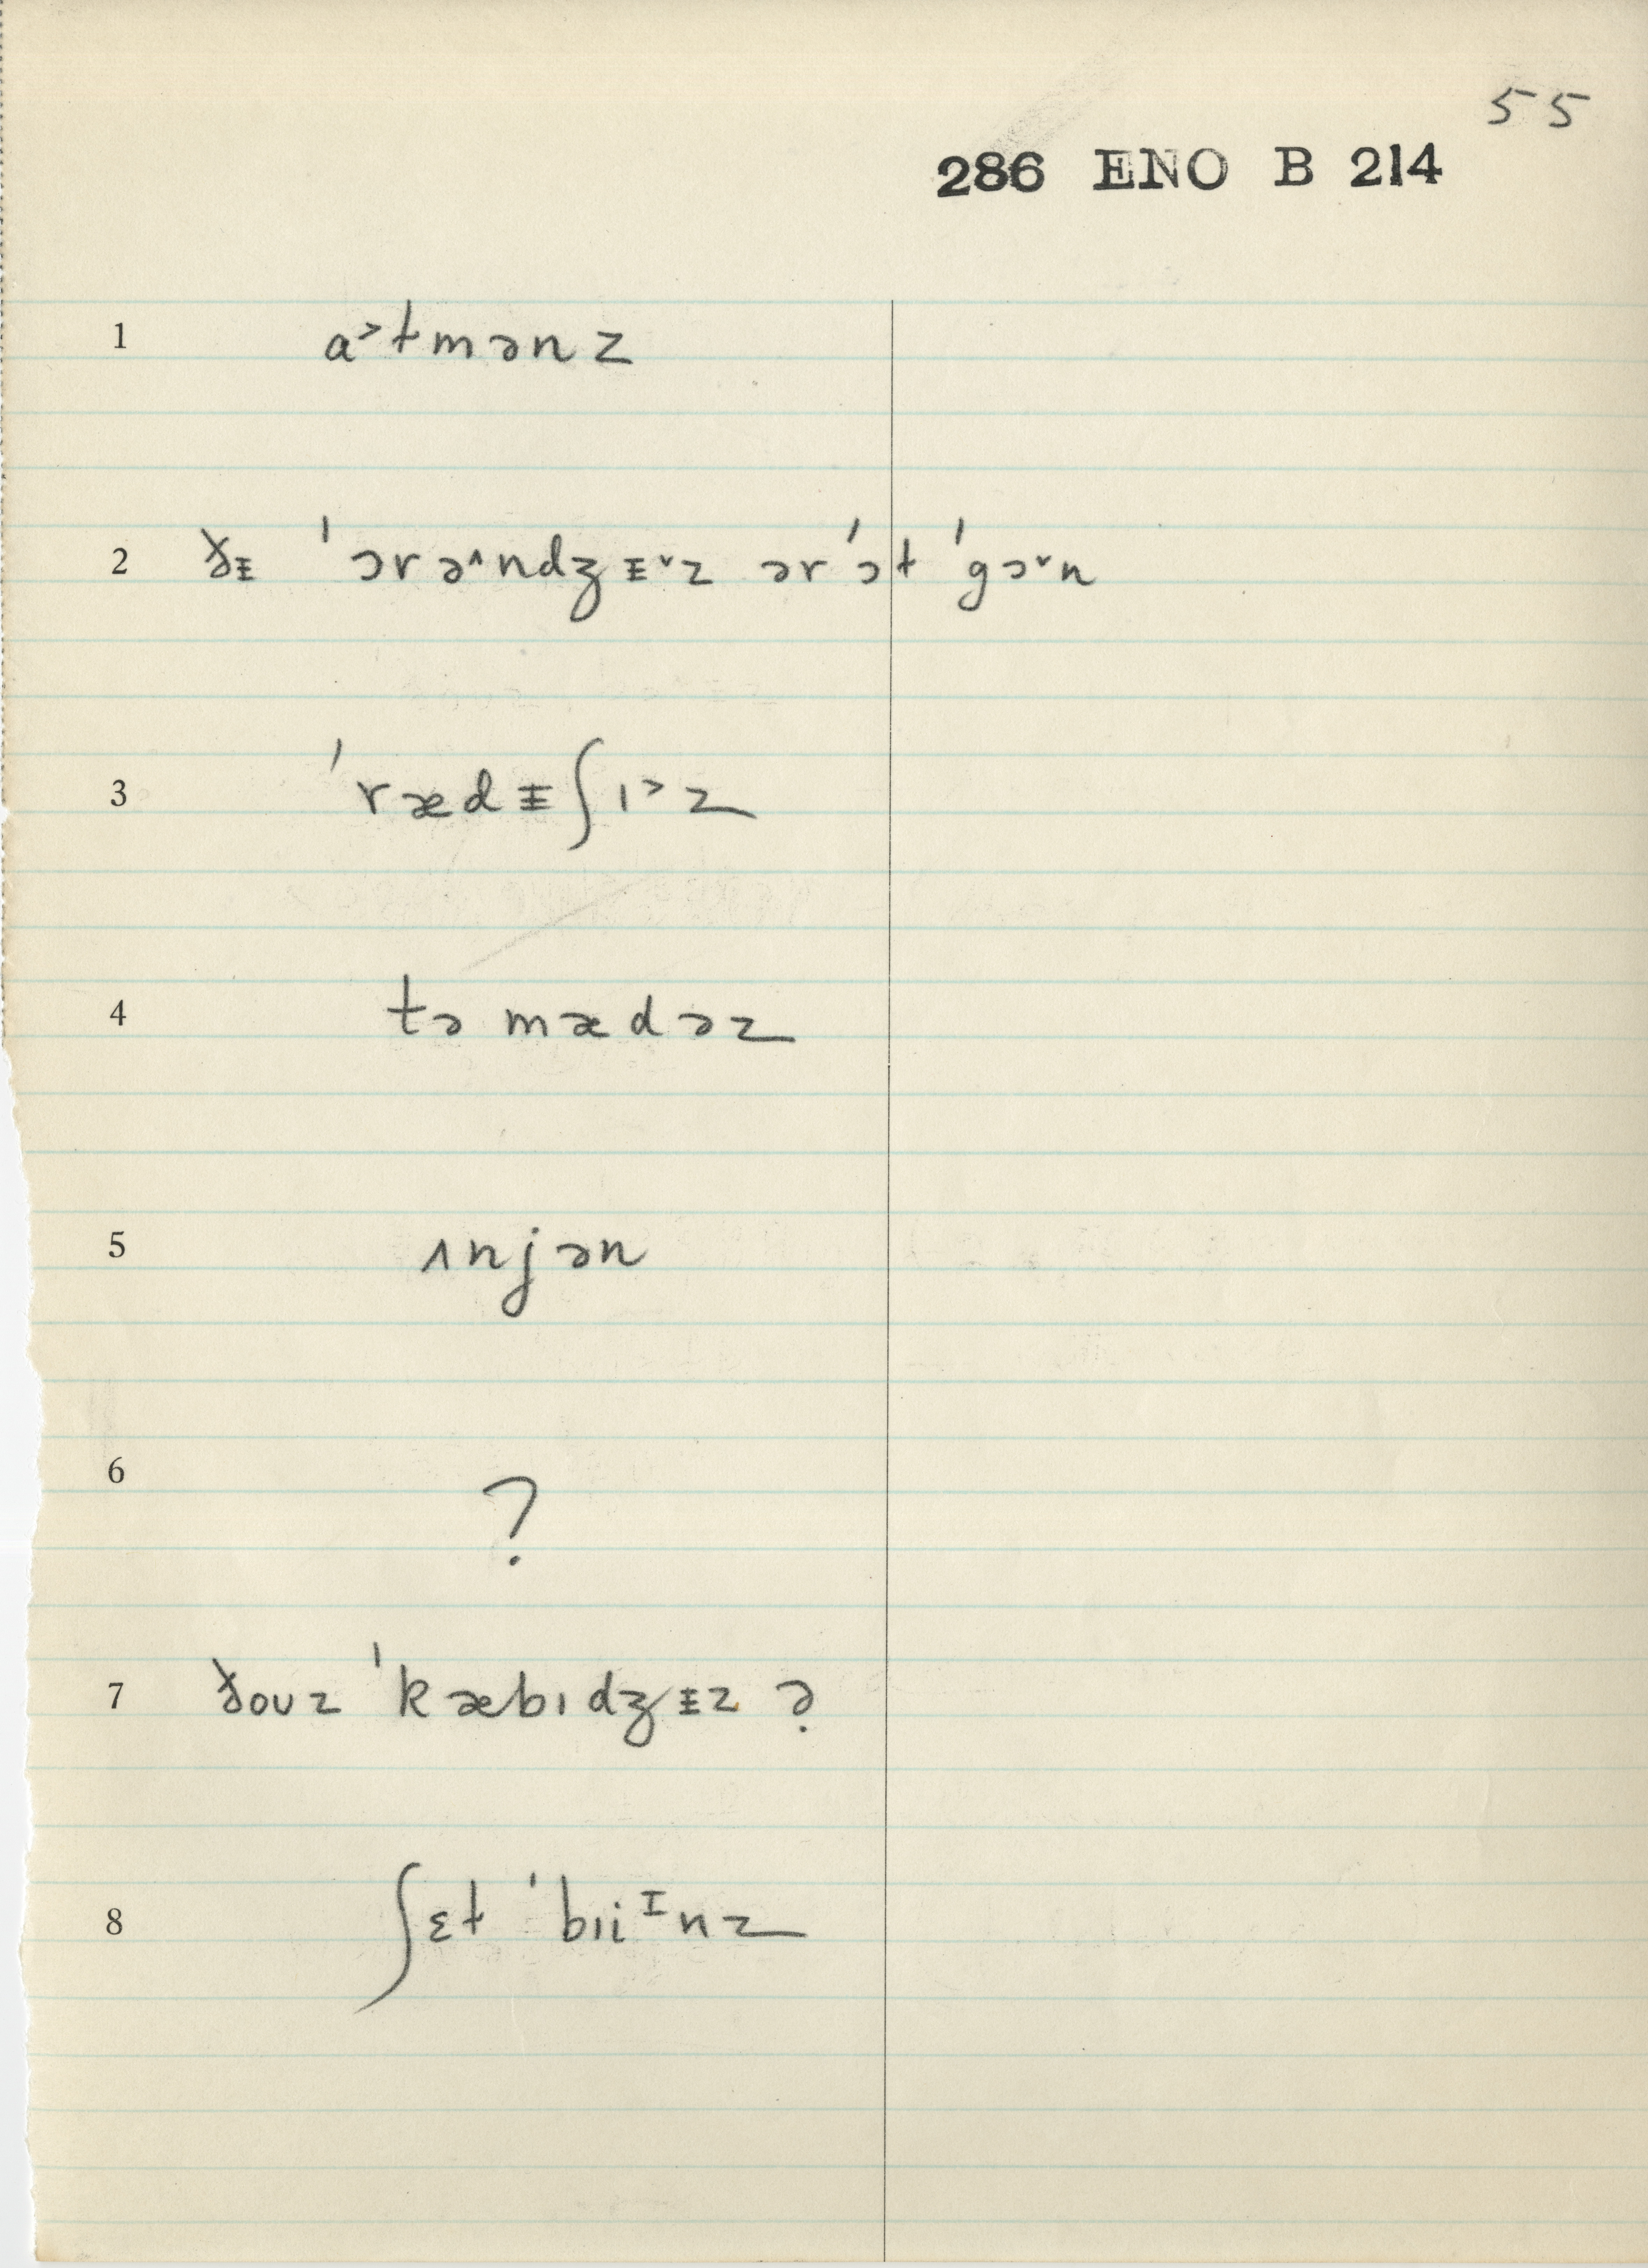 55
286 ENO B 214
1 a˃tmənz
2 ðᵻ ˈɔrə˄ndʒᵻ˅z ərˈɔt ˈgɔ˅n
3 ˈrædᵻʃɪ˃z
4 təmædəz
5 ʌnjən
6 ?
7 ðouz ˈkæbɪdʒᵻz ə̣
8 ʃɛt ˈbɪiᶦnz